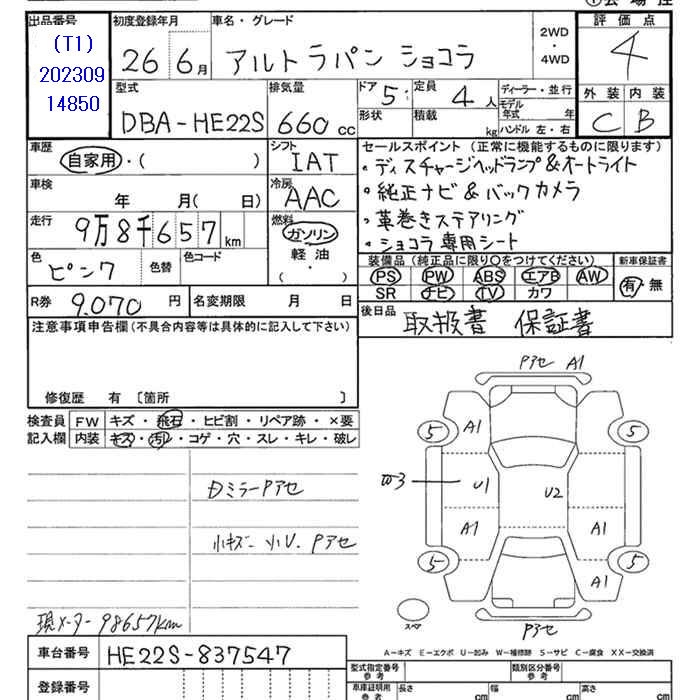 出品番号 初度登録年月 車名・グレード 2WD・4WD 評価点
(T1) 202309 14850
26 6月 アルトラパン ショコラ 4
型式 排気量 ドア 定員 ディーラー・並行 外装 内装
DBA-HE22S 660cc 5 4人 モデル年式 年 C B
形状 積載 kg ハンドル 左・右
車歴 シフト セールスポイント (正常に機能するものに限ります)
自家用・( ) IAT ・ディスチャージヘッドランプ&オートライト
車検 冷房 ・純正ナビ&バックカメラ
年 月( 日) AAC ・革巻きステアリング
走行 燃料 ・ショコラ専用シート
9万8千657km ガソリン
色 色替 色コード 軽油 装備品(純正品に限り○をつけてください) 新車保証書
ピンク ・( ) PS PW ABS エアB AW 有・無
SR ナビ TV カワ
R券 9.070円 名変期限 月 日 後日品 取扱書 保証書
注意事項申告欄(不具合内容等は具体的に記入して下さい)
修復歴 有 〔箇所 〕
検査員記入欄 FW キズ・飛石・ヒビ割・リペア跡・×要
内装 キズ・汚レ・コゲ・穴・スレ・キレ・破レ
Pアセ A1
5 A1 5
U1 U2
A1 A1
5 A1 5
スペア Pアセ
ミラーPアセ
小キズ 小U. Pアセ
現メーター98657km
A―キズ E―エクボ U―凹み W―補修跡 S―サビ C―腐食 XX―交換済
車台番号 HE22S-837547 型式指定番号 参考 類別区分番号 参考
登録番号 車庫証明用 参考 長さ cm 幅 cm 高さ cm